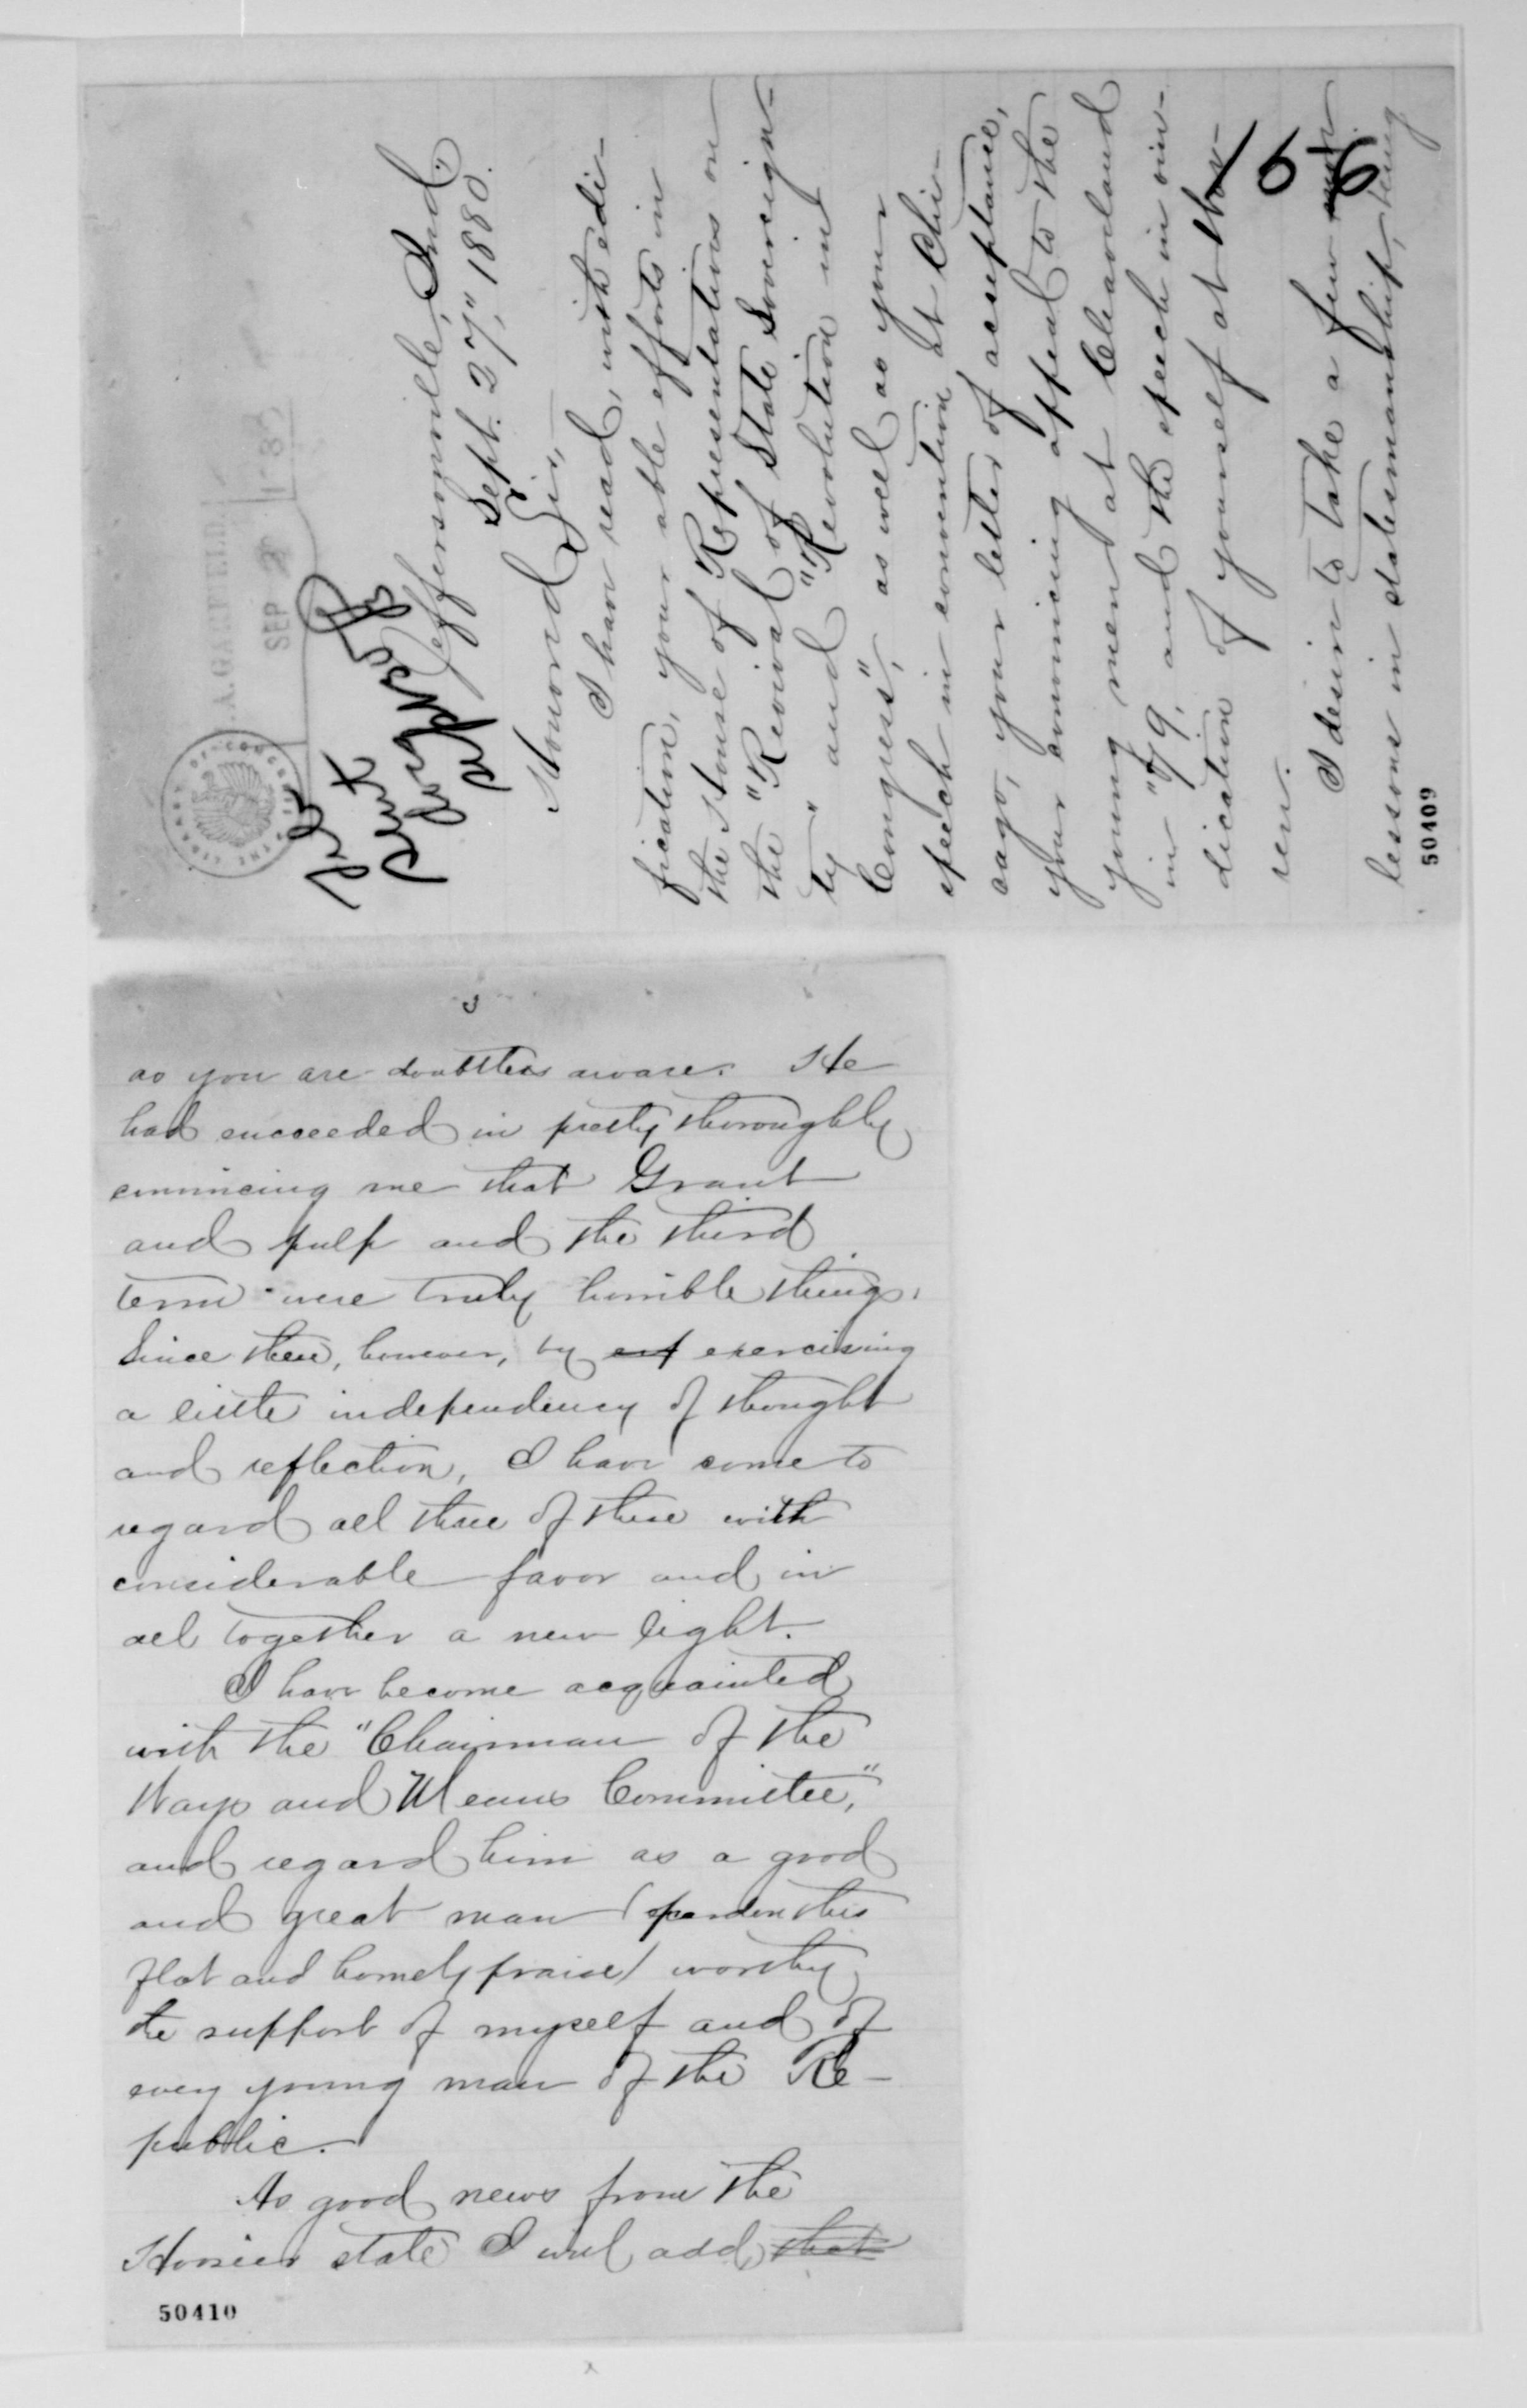 J. A. GARFIELD
SEP 30 1880
THE LIBRARY OF CONGRESS
File
Sent
Jeffersonville, Ind.,
Sept. 27," 1880.
Honored Sir,—
I have read, with edi-
fication, your able efforts in
the House of Representatives on
the "Revival of State Sovereign-
ty" and "Revolution in
Congress", as well as your
speech in convention at Chi-
cago, your letter of acceptance,
your convincing appeal to the
young men at Cleaveland
in "79, and the speech in vin-
dication of yourself at War-
ren.
I desire to take a few
lessons in statesmanship, being
156
50409
3
as you are doubtless aware. He
had succeeded in pretty thoroughly
convincing me that Grant
and pulp and the third
term were truly horrible things.
Since then, however, by exercising
a little independency of thought
and reflection, I have come to
regard all three of these with
considerable favor and in
all together a new light.
I have become acquainted
with the "Chairman of the
Ways and Means Committee,"
and regard him as a good
and great man (pardon this
flat and homely praise) worthy
the support of myself and of
every young man of the Re-
public.
As good news from the
Hoosier state I will add that
50410